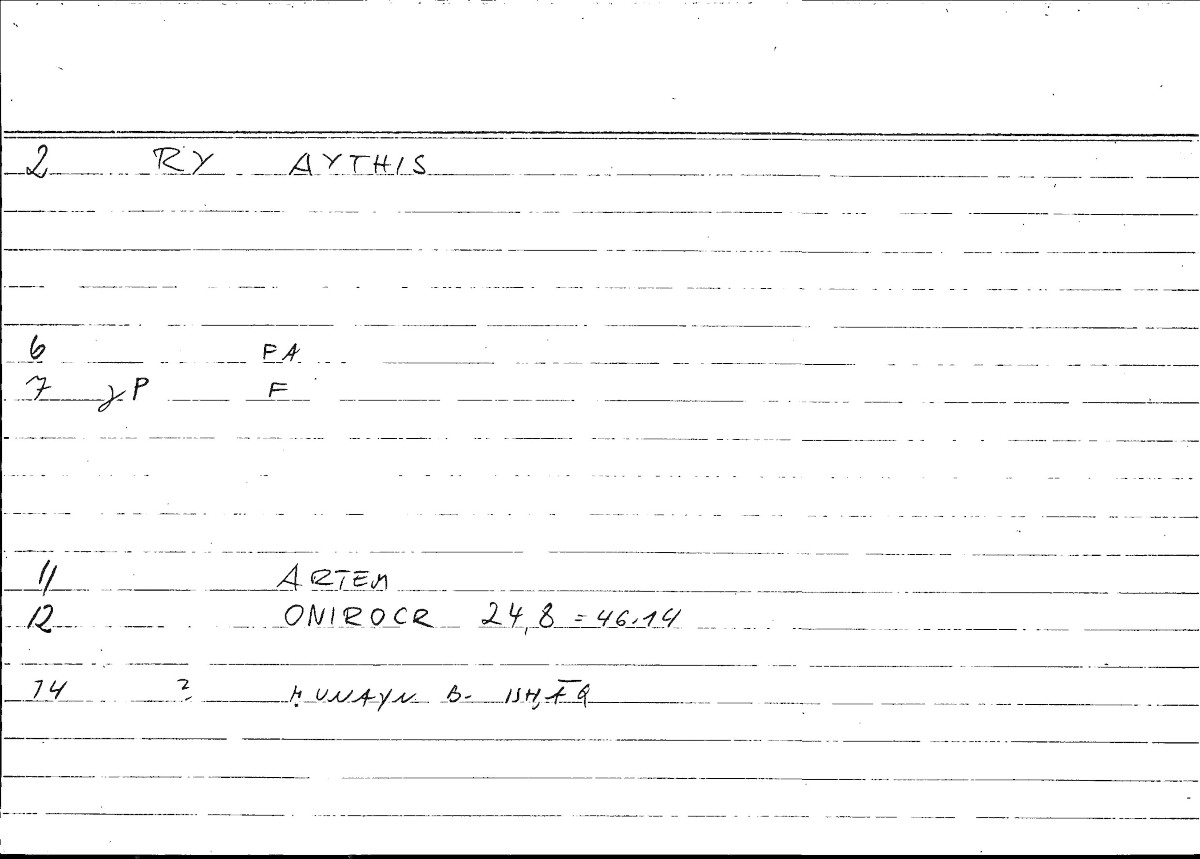 2 RY AYTHIS
6 FA
7 γP F
11 ARTEM
12 ONIROCR 24,8 = 46.14
14 ? ḤUNAYN B- ISḤĀQ